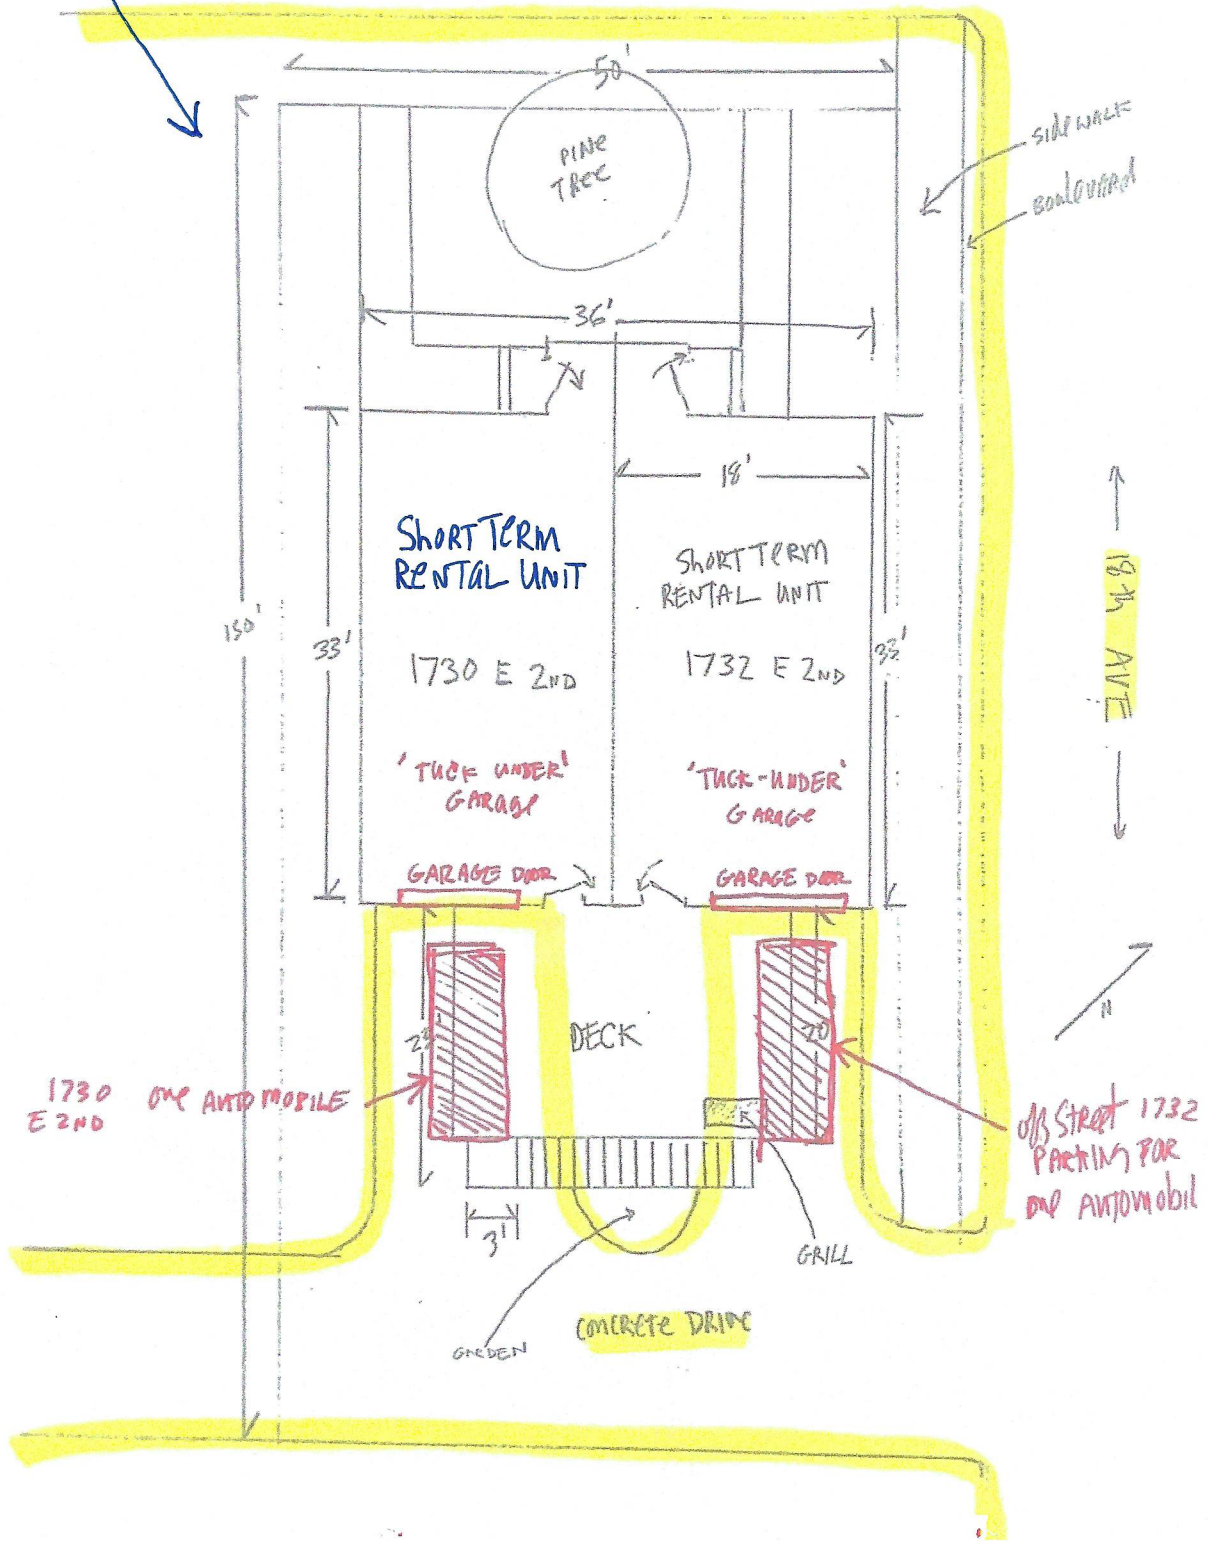 50'
PINE
TREE
SIDEWALK
BOULEVARD
36'
18'
SHORT TERM
RENTAL UNIT
SHORT TERM
RENTAL UNIT
150'
33'
1730 E 2ND
1732 E 2ND
33'
18th AVE
'TUCK UNDER'
GARAGE
'TUCK-UNDER'
GARAGE
GARAGE DOOR
GARAGE DOOR
N
DECK
20'
1730
E 2ND
ONE AUTOMOBILE
Off Street 1732
PARKING FOR
ONE AUTOMOBIL
3'
GRILL
GARDEN
CONCRETE DRIVE